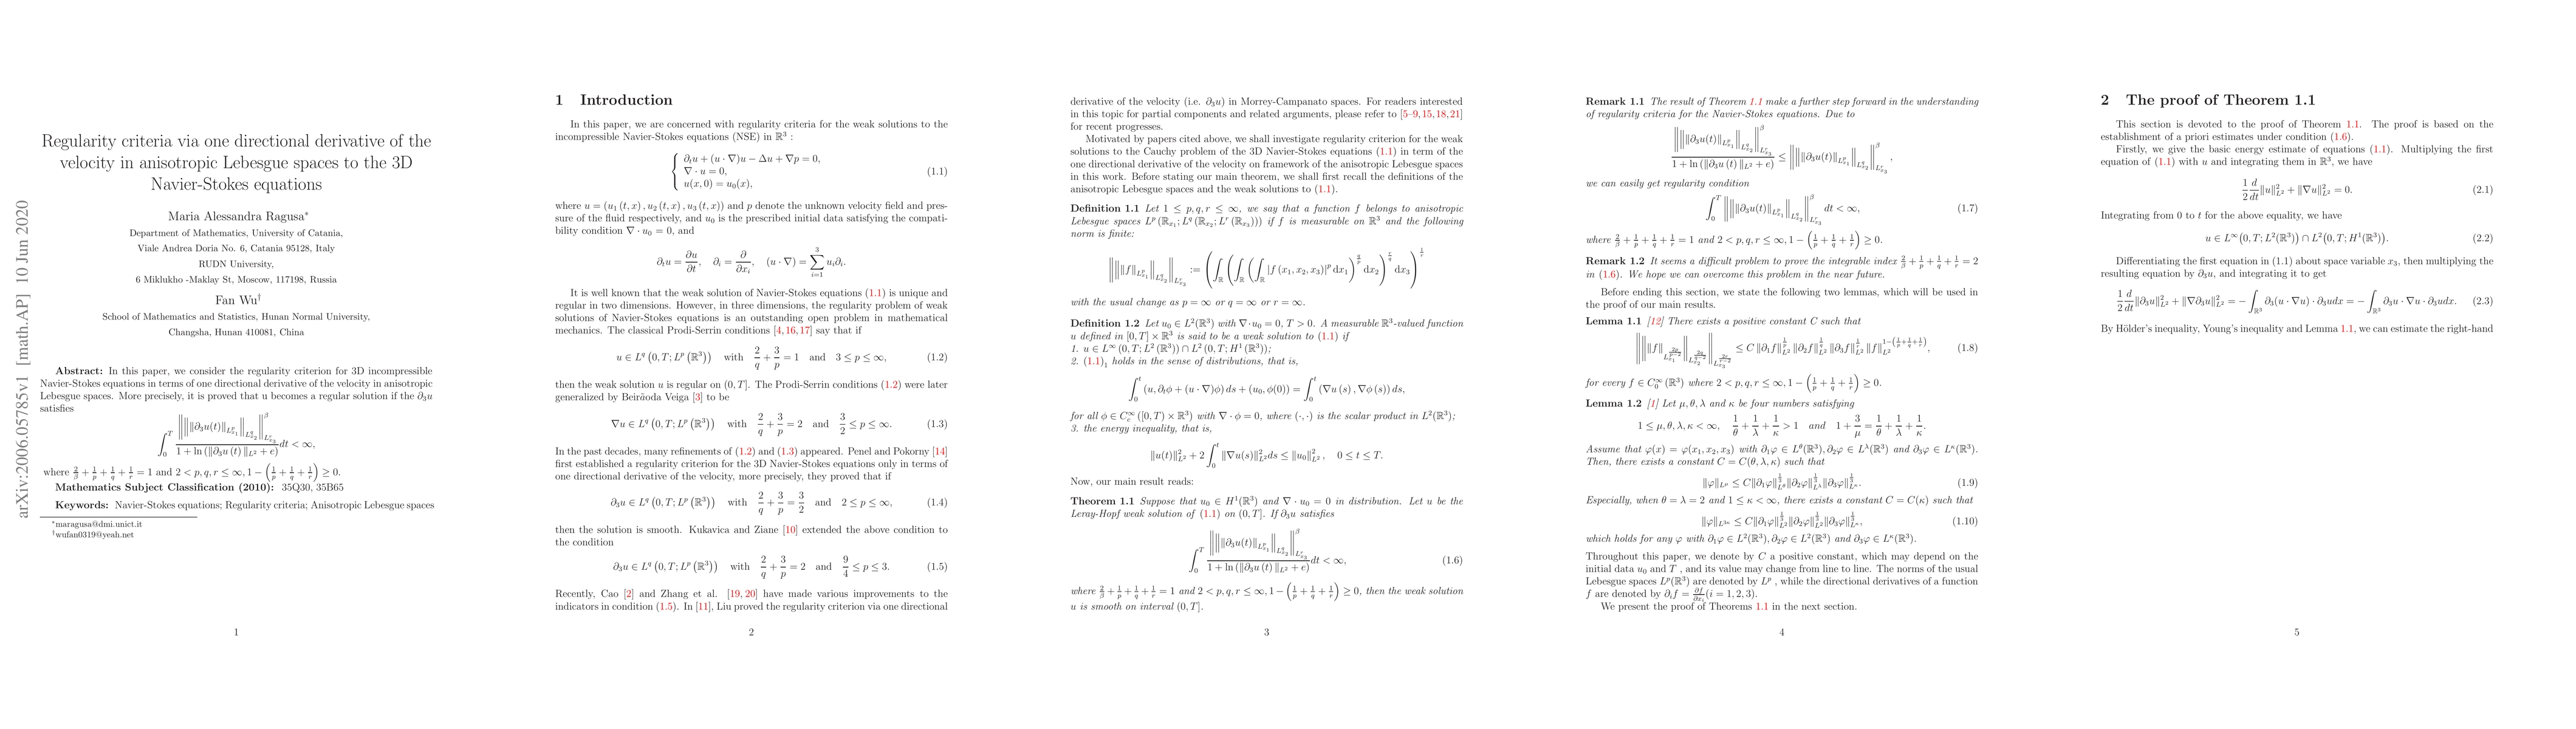 arXiv:2006.05785v1 [math.AP] 10 Jun 2020
Regularity criteria via one directional derivative of the
velocity in anisotropic Lebesgue spaces to the 3D
Navier-Stokes equations
Maria Alessandra Ragusa*
Department of Mathematics, University of Catania,
Viale Andrea Doria No. 6, Catania 95128, Italy
RUDN University,
6 Miklukho -Maklay St, Moscow, 117198, Russia
Fan Wu†
School of Mathematics and Statistics, Hunan Normal University,
Changsha, Hunan 410081, China
Abstract: In this paper, we consider the regularity criterion for 3D incompressible
Navier-Stokes equations in terms of one directional derivative of the velocity in anisotropic
Lebesgue spaces. More precisely, it is proved that u becomes a regular solution if the ∂₃u
satisfies
∫_0^T \frac{‖‖‖∂₃u(t)‖_{L^p_{x_1}}‖_{L^q_{x_2}}‖^β_{L^r_{x_3}}}{1 + ln (‖∂₃u (t) ‖_{L^2} + e)} dt < ∞,
where 2/β + 1/p + 1/q + 1/r = 1 and 2 < p, q, r ≤ ∞, 1 − (1/p + 1/q + 1/r) ≥ 0.
Mathematics Subject Classification (2010): 35Q30, 35B65
Keywords: Navier-Stokes equations; Regularity criteria; Anisotropic Lebesgue spaces
*maragusa@dmi.unict.it
†wufan0319@yeah.net
1
1 Introduction
In this paper, we are concerned with regularity criteria for the weak solutions to the
incompressible Navier-Stokes equations (NSE) in ℝ³ :
{ ∂_t u + (u · ∇)u − Δu + ∇p = 0,
∇ · u = 0, (1.1)
u(x, 0) = u₀(x),
where u = (u₁ (t, x) , u₂ (t, x) , u₃ (t, x)) and p denote the unknown velocity field and pres-
sure of the fluid respectively, and u₀ is the prescribed initial data satisfying the compati-
bility condition ∇ · u₀ = 0, and
∂_t u = ∂u/∂t, ∂_i = ∂/∂x_i, (u · ∇) = ∑_{i=1}^3 u_i∂_i.
It is well known that the weak solution of Navier-Stokes equations (1.1) is unique and
regular in two dimensions. However, in three dimensions, the regularity problem of weak
solutions of Navier-Stokes equations is an outstanding open problem in mathematical
mechanics. The classical Prodi-Serrin conditions [4,16,17] say that if
u ∈ L^q (0, T; L^p (ℝ³)) with 2/q + 3/p = 1 and 3 ≤ p ≤ ∞, (1.2)
then the weak solution u is regular on (0, T]. The Prodi-Serrin conditions (1.2) were later
generalized by Beirãoda Veiga [3] to be
∇u ∈ L^q (0, T; L^p (ℝ³)) with 2/q + 3/p = 2 and 3/2 ≤ p ≤ ∞. (1.3)
In the past decades, many refinements of (1.2) and (1.3) appeared. Penel and Pokorny [14]
first established a regularity criterion for the 3D Navier-Stokes equations only in terms of
one directional derivative of the velocity, more precisely, they proved that if
∂₃u ∈ L^q (0, T; L^p (ℝ³)) with 2/q + 3/p = 3/2 and 2 ≤ p ≤ ∞, (1.4)
then the solution is smooth. Kukavica and Ziane [10] extended the above condition to
the condition
∂₃u ∈ L^q (0, T; L^p (ℝ³)) with 2/q + 3/p = 2 and 9/4 ≤ p ≤ 3. (1.5)
Recently, Cao [2] and Zhang et al. [19, 20] have made various improvements to the
indicators in condition (1.5). In [11], Liu proved the regularity criterion via one directional
2
derivative of the velocity (i.e. ∂₃u) in Morrey-Campanato spaces. For readers interested
in this topic for partial components and related arguments, please refer to [5–9,15,18,21]
for recent progresses.
Motivated by papers cited above, we shall investigate regularity criterion for the weak
solutions to the Cauchy problem of the 3D Navier-Stokes equations (1.1) in term of the
one directional derivative of the velocity on framework of the anisotropic Lebesgue spaces
in this work. Before stating our main theorem, we shall first recall the definitions of the
anisotropic Lebesgue spaces and the weak solutions to (1.1).
Definition 1.1 Let 1 ≤ p, q, r ≤ ∞, we say that a function f belongs to anisotropic
Lebesgue spaces L^p (ℝ_{x_1}; L^q (ℝ_{x_2}; L^r (ℝ_{x_3}))) if f is measurable on ℝ³ and the following
norm is finite:
‖‖‖f‖_{L^p_{x_1}}‖_{L^q_{x_2}}‖_{L^r_{x_3}} := (∫_ℝ (∫_ℝ (∫_ℝ |f (x₁, x₂, x₃)|^p dx₁)^{q/p} dx₂)^{r/q} dx₃)^{1/r}
with the usual change as p = ∞ or q = ∞ or r = ∞.
Definition 1.2 Let u₀ ∈ L²(ℝ³) with ∇·u₀ = 0, T > 0. A measurable ℝ³-valued function
u defined in [0, T] × ℝ³ is said to be a weak solution to (1.1) if
1. u ∈ L^∞ (0, T; L² (ℝ³)) ∩ L² (0, T; H¹ (ℝ³));
2. (1.1)₁ holds in the sense of distributions, that is,
∫_0^t (u, ∂_tϕ + (u · ∇)ϕ) ds + (u₀, ϕ(0)) = ∫_0^t (∇u (s) , ∇ϕ (s)) ds,
for all ϕ ∈ C_c^∞ ([0, T) × ℝ³) with ∇ · ϕ = 0, where (·, ·) is the scalar product in L²(ℝ³);
3. the energy inequality, that is,
‖u(t)‖²_{L²} + 2 ∫_0^t ‖∇u(s)‖²_{L²} ds ≤ ‖u₀‖²_{L²} , 0 ≤ t ≤ T.
Now, our main result reads:
Theorem 1.1 Suppose that u₀ ∈ H¹(ℝ³) and ∇ · u₀ = 0 in distribution. Let u be the
Leray-Hopf weak solution of (1.1) on (0, T]. If ∂₃u satisfies
∫_0^T \frac{‖‖‖∂₃u(t)‖_{L^p_{x_1}}‖_{L^q_{x_2}}‖^β_{L^r_{x_3}}}{1 + ln (‖∂₃u (t) ‖_{L²} + e)} dt < ∞, (1.6)
where 2/β + 1/p + 1/q + 1/r = 1 and 2 < p, q, r ≤ ∞, 1 − (1/p + 1/q + 1/r) ≥ 0, then the weak solution
u is smooth on interval (0, T].
3
Remark 1.1 The result of Theorem 1.1 make a further step forward in the understanding
of regularity criteria for the Navier-Stokes equations. Due to
\frac{‖‖‖∂₃u(t)‖_{L^p_{x_1}}‖_{L^q_{x_2}}‖^β_{L^r_{x_3}}}{1 + ln (‖∂₃u (t) ‖_{L²} + e)} ≤ ‖‖‖∂₃u(t)‖_{L^p_{x_1}}‖_{L^q_{x_2}}‖^β_{L^r_{x_3}} ,
we can easily get regularity condition
∫_0^T ‖‖‖∂₃u(t)‖_{L^p_{x_1}}‖_{L^q_{x_2}}‖^β_{L^r_{x_3}} dt < ∞, (1.7)
where 2/β + 1/p + 1/q + 1/r = 1 and 2 < p, q, r ≤ ∞, 1 − (1/p + 1/q + 1/r) ≥ 0.
Remark 1.2 It seems a difficult problem to prove the integrable index 2/β + 1/p + 1/q + 1/r = 2
in (1.6). We hope we can overcome this problem in the near future.
Before ending this section, we state the following two lemmas, which will be used in
the proof of our main results.
Lemma 1.1 [12] There exists a positive constant C such that
‖‖‖f‖_{L_{x_1}^{2p/(p−2)}}‖_{L_{x_2}^{2q/(q−2)}}‖_{L_{x_3}^{2r/(r−2)}} ≤ C ‖∂₁f‖_{L²}^{1/p} ‖∂₂f‖_{L²}^{1/q} ‖∂₃f‖_{L²}^{1/r} ‖f‖_{L²}^{1−(1/p+1/q+1/r)}, (1.8)
for every f ∈ C_0^∞ (ℝ³) where 2 < p, q, r ≤ ∞, 1 − (1/p + 1/q + 1/r) ≥ 0.
Lemma 1.2 [1] Let μ, θ, λ and κ be four numbers satisfying
1 ≤ μ, θ, λ, κ < ∞, 1/θ + 1/λ + 1/κ > 1 and 1 + 3/μ = 1/θ + 1/λ + 1/κ.
Assume that φ(x) = φ(x₁, x₂, x₃) with ∂₁φ ∈ L^θ(ℝ³), ∂₂φ ∈ L^λ(ℝ³) and ∂₃φ ∈ L^κ(ℝ³).
Then, there exists a constant C = C(θ, λ, κ) such that
‖φ‖_{L^μ} ≤ C‖∂₁φ‖_{L^θ}^{1/3}‖∂₂φ‖_{L^λ}^{1/3}‖∂₃φ‖_{L^κ}^{1/3}. (1.9)
Especially, when θ = λ = 2 and 1 ≤ κ < ∞, there exists a constant C = C(κ) such that
‖φ‖_{L^{3κ}} ≤ C‖∂₁φ‖_{L²}^{1/3}‖∂₂φ‖_{L²}^{1/3}‖∂₃φ‖_{L^κ}^{1/3}, (1.10)
which holds for any φ with ∂₁φ ∈ L²(ℝ³), ∂₂φ ∈ L²(ℝ³) and ∂₃φ ∈ L^κ(ℝ³).
Throughout this paper, we denote by C a positive constant, which may depend on the
initial data u₀ and T , and its value may change from line to line. The norms of the usual
Lebesgue spaces L^p(ℝ³) are denoted by L^p , while the directional derivatives of a function
f are denoted by ∂_i f = ∂f/∂x_i (i = 1, 2, 3).
We present the proof of Theorems 1.1 in the next section.
4
2 The proof of Theorem 1.1
This section is devoted to the proof of Theorem 1.1. The proof is based on the
establishment of a priori estimates under condition (1.6).
Firstly, we give the basic energy estimate of equations (1.1). Multiplying the first
equation of (1.1) with u and integrating them in ℝ³, we have
1/2 d/dt ‖u‖²_{L²} + ‖∇u‖²_{L²} = 0. (2.1)
Integrating from 0 to t for the above equality, we have
u ∈ L^∞(0, T; L²(ℝ³)) ∩ L²(0, T; H¹(ℝ³)). (2.2)
Differentiating the first equation in (1.1) about space variable x₃, then multiplying the
resulting equation by ∂₃u, and integrating it to get
1/2 d/dt ‖∂₃u‖²_{L²} + ‖∇∂₃u‖²_{L²} = − ∫_{ℝ³} ∂₃(u · ∇u) · ∂₃udx = − ∫_{ℝ³} ∂₃u · ∇u · ∂₃udx. (2.3)
By Hölder's inequality, Young's inequality and Lemma 1.1, we can estimate the right-hand
5